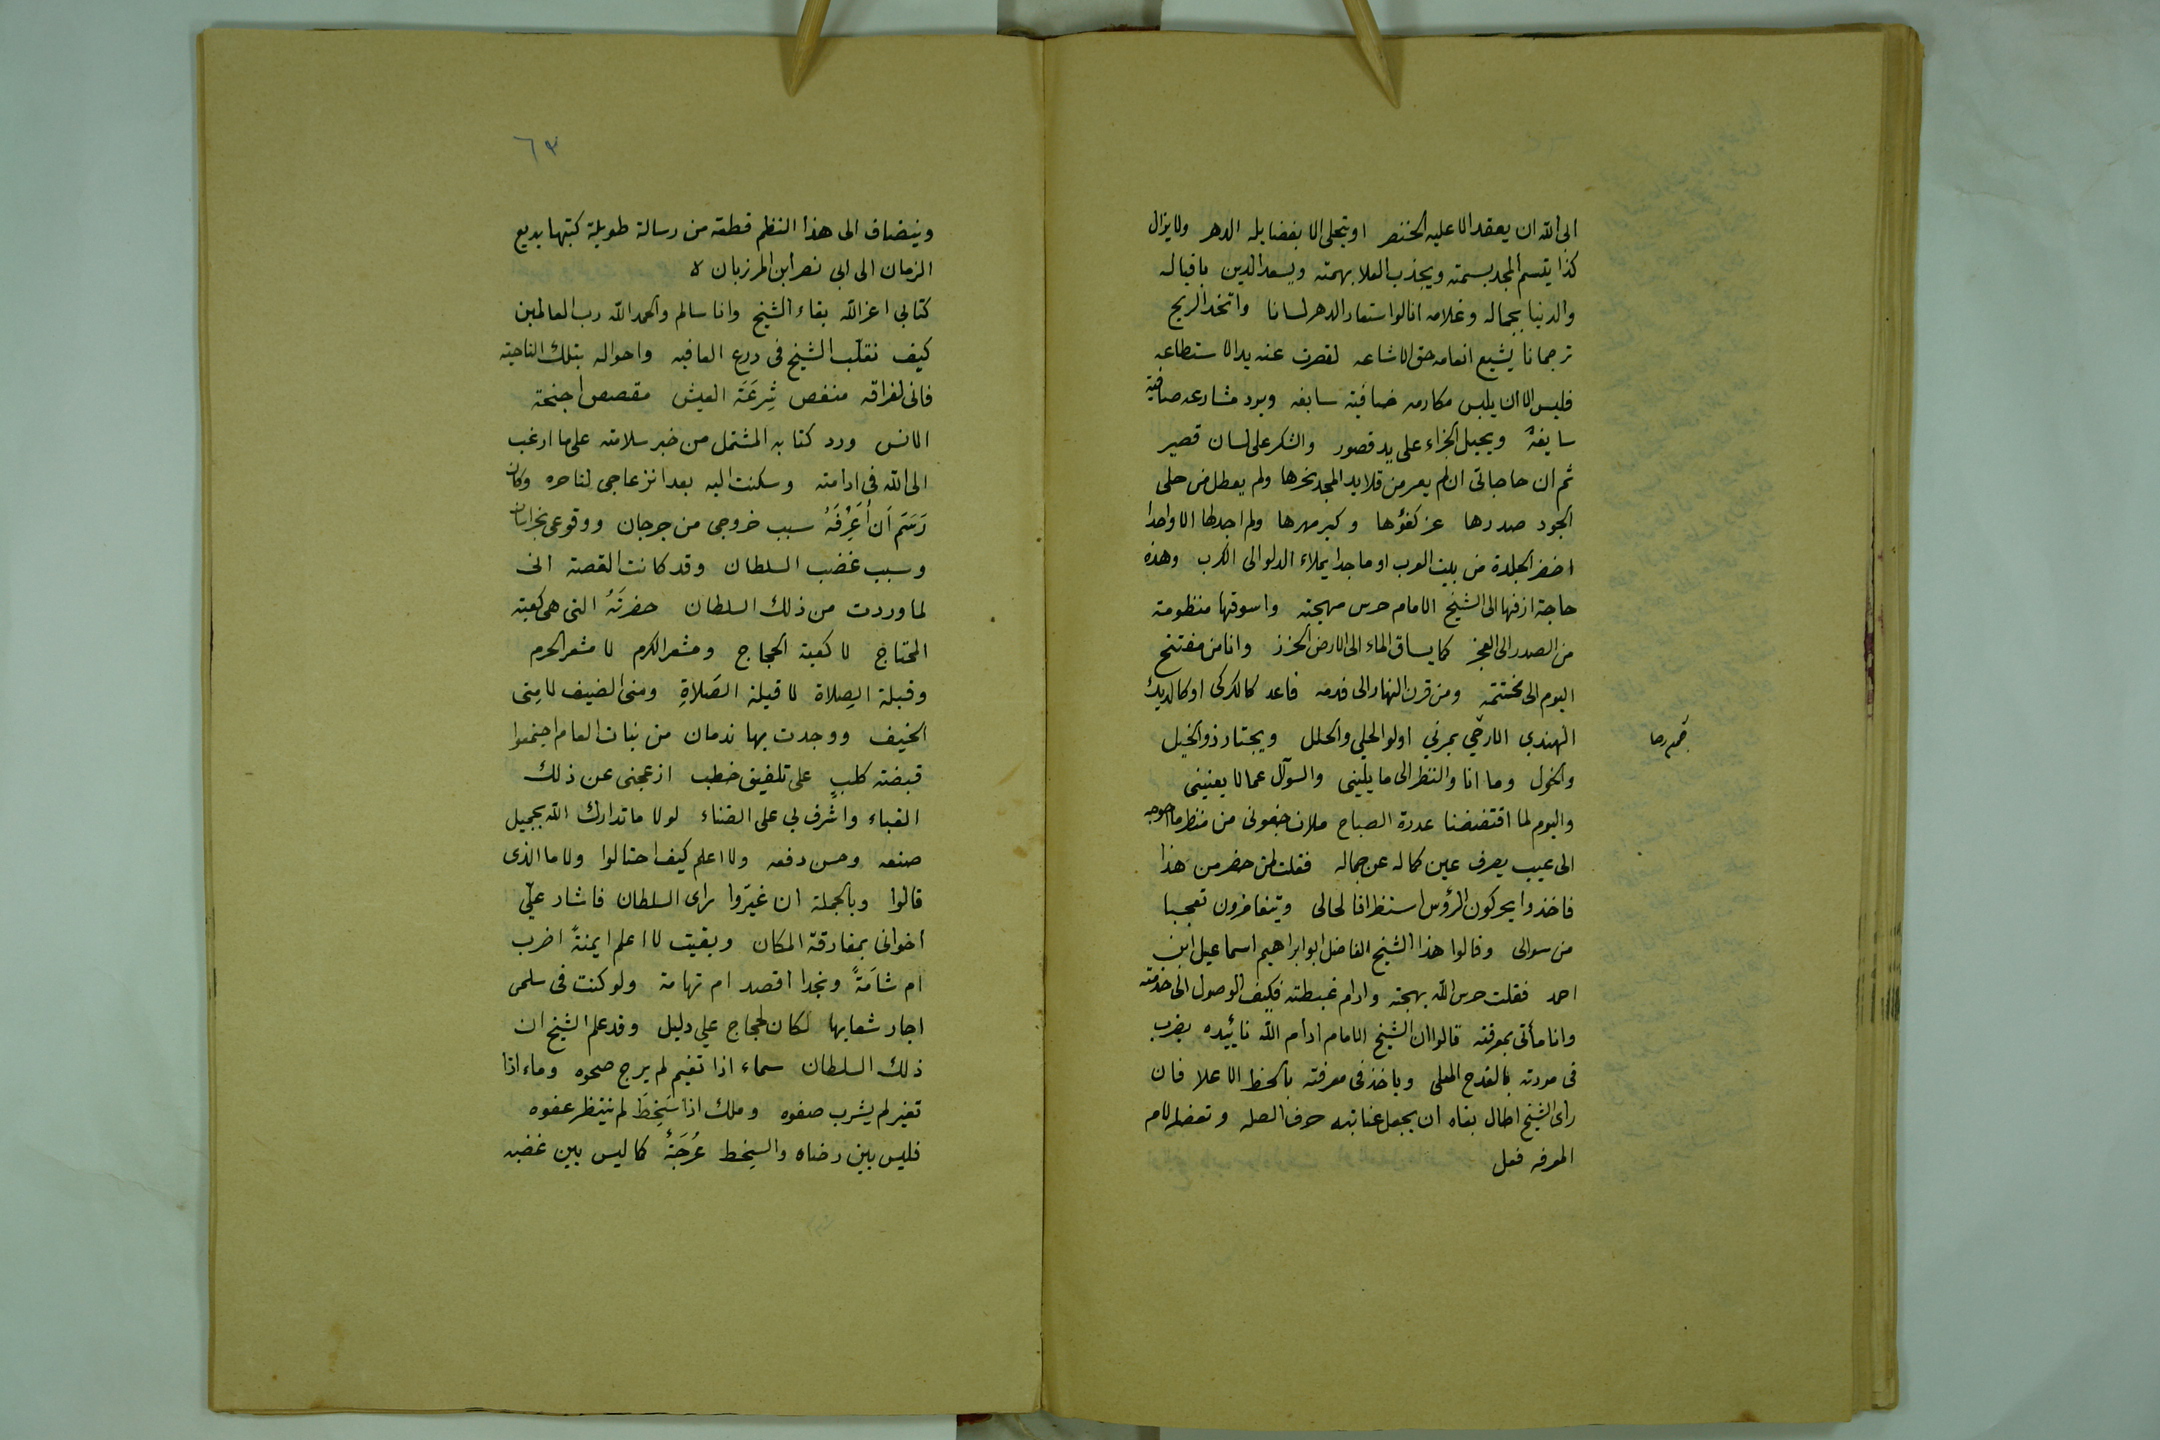 ابى الله ان يعقد الا عليه الخنصر او يتحلى الا بفضايله الدهر ولا يزال
كذا يتسم المجد بسمته ويجذب العلا بهمته ويسعد الدين باقباله
والدنيا بجماله وغلامه انا لو استعار الدهر لسانا واتخذ الريح
ترجمانا يشيع انعامه حق الاشاعه لقصرت عنه يد الاستطاعه
فليس الا ان يلبس مكارمه ضافية سابغه ويرد مشارعه صافية
سايغة ويحيل الجزاء على يد قصور والشكر على لسان قصير
ثم ان حاجاتى ان لم يعر من قلايد المجد نحرها ولم يعطل من حلى
الجود صدرها عز كفؤها وكبر مهرها ولم اجد لها الا واحدا
اخضر الجلدة من بيت العرب او ماجدا يملاء الدلو الى الكرب وهذه
حاجة ازفها الى الشيخ الامام حرس مهجته واسوقها منظومة
من الصدر الى العجز كما يساق الماء الى الارض الجرز وانا من مفتتح
اليوم الى مختتمه ومن قرن النهار الى قدمه قاعد كالكركى او كالديك
الهندي الارضي يمر بي اولو الحلي والحلل ويجتاز ذو الخيل
والخول وما انا والنظر الى ما يلينى والسوآل عما لا يعنينى
واليوم لما اقتضضنا عذرة الصباح ملات جفونى من منظر ما احوجه
الى عيب يصرف عين كماله عن جماله فقلت لمن حضر من هذا
فاخذوا يحركون الرؤس استظرافا لحالى ويتغامزون تعجبا
من سوالى وقالوا هذا الشيخ الفاضل ابو ابراهيم اسماعيل ابن
احمد فقلت حرس الله بهجته وادام غبطته فكيف الوصول الى خدمته
وانا مأتى بمعرفته قالوا ان الشيخ الامام ادام الله تائييده يضرب
فى مودته بالقدح المعلى وياخذ فى معرفته بالحظ الاعلا فان
راى الشيخ اطال بقاه ان يجعل عنايته حرف الصله وتفضله لام
المعرفه فعل
٦٣
وينضاف الى هذا النظم قطعة من رسالة طويلة كتبها بديع
الزمان الى ابى نصر ابن المرزبان
كتابي اعز الله بقاء الشيخ وانا سالم والحمد لله رب العالمين
كيف تقلّب الشيخ فى درع العافيه واحواله بتلك الناحية
فانى لفراقه منغص شِرعَة العيش مقصص اجنحة
الانس ورد كتابه المشتمل من خبر سلامته على ما ارغب
الى الله فى ادامته وسكنت اليه بعد انزعاجى لتاخره وكان
رَسَم اَن اُعَرِّفَهُ سبب خروجى من جرجان ووقوعى بخراسان
وسبب غضب السلطان وقد كانت القصة انى
لما وردت من ذلك السلطان حضرَتَهُ التى هى كعبة
المحتاج لا كعبة الحجاج ومشعر الكرم لا مشعر الحرم
وقبلة الصِلاة لا قبلة الصَلاةِ ومنى الضيف لا مِنى
الخيف ووجدت بها ندمان من نبات العام اجتمعوا
قبضة كلبٍ على تلفيق خطب ازعجنى عن ذلك
الفناء واشرف بي على الفناء لولا ما تدارك الله بجميل
صنعه وحسن دفعه ولا اعلم كيف احتالوا ولا ما الذى
قالوا وبالجملة ان غيّروا راى السلطان فاشار عليّ
اخوانى بمفارقة المكان وبقيت لا اعلم ايمنةً اضرب
ام شامَةً ونجدا اقصد ام تهامة ولو كنت فى سلمى
اجا وشعابها لكان لحجاج علي دليل وقد علم الشيخ ان
ذلك السلطان سماء اذا تغيم لم يرج صحوه وماء اذا
تغير لم يشرب صفوه وملك اذا سَخِطَ لم ينتظر عفوه
فليس بين رضاه والسخط عُرجَةُ كما ليس بين غضبه